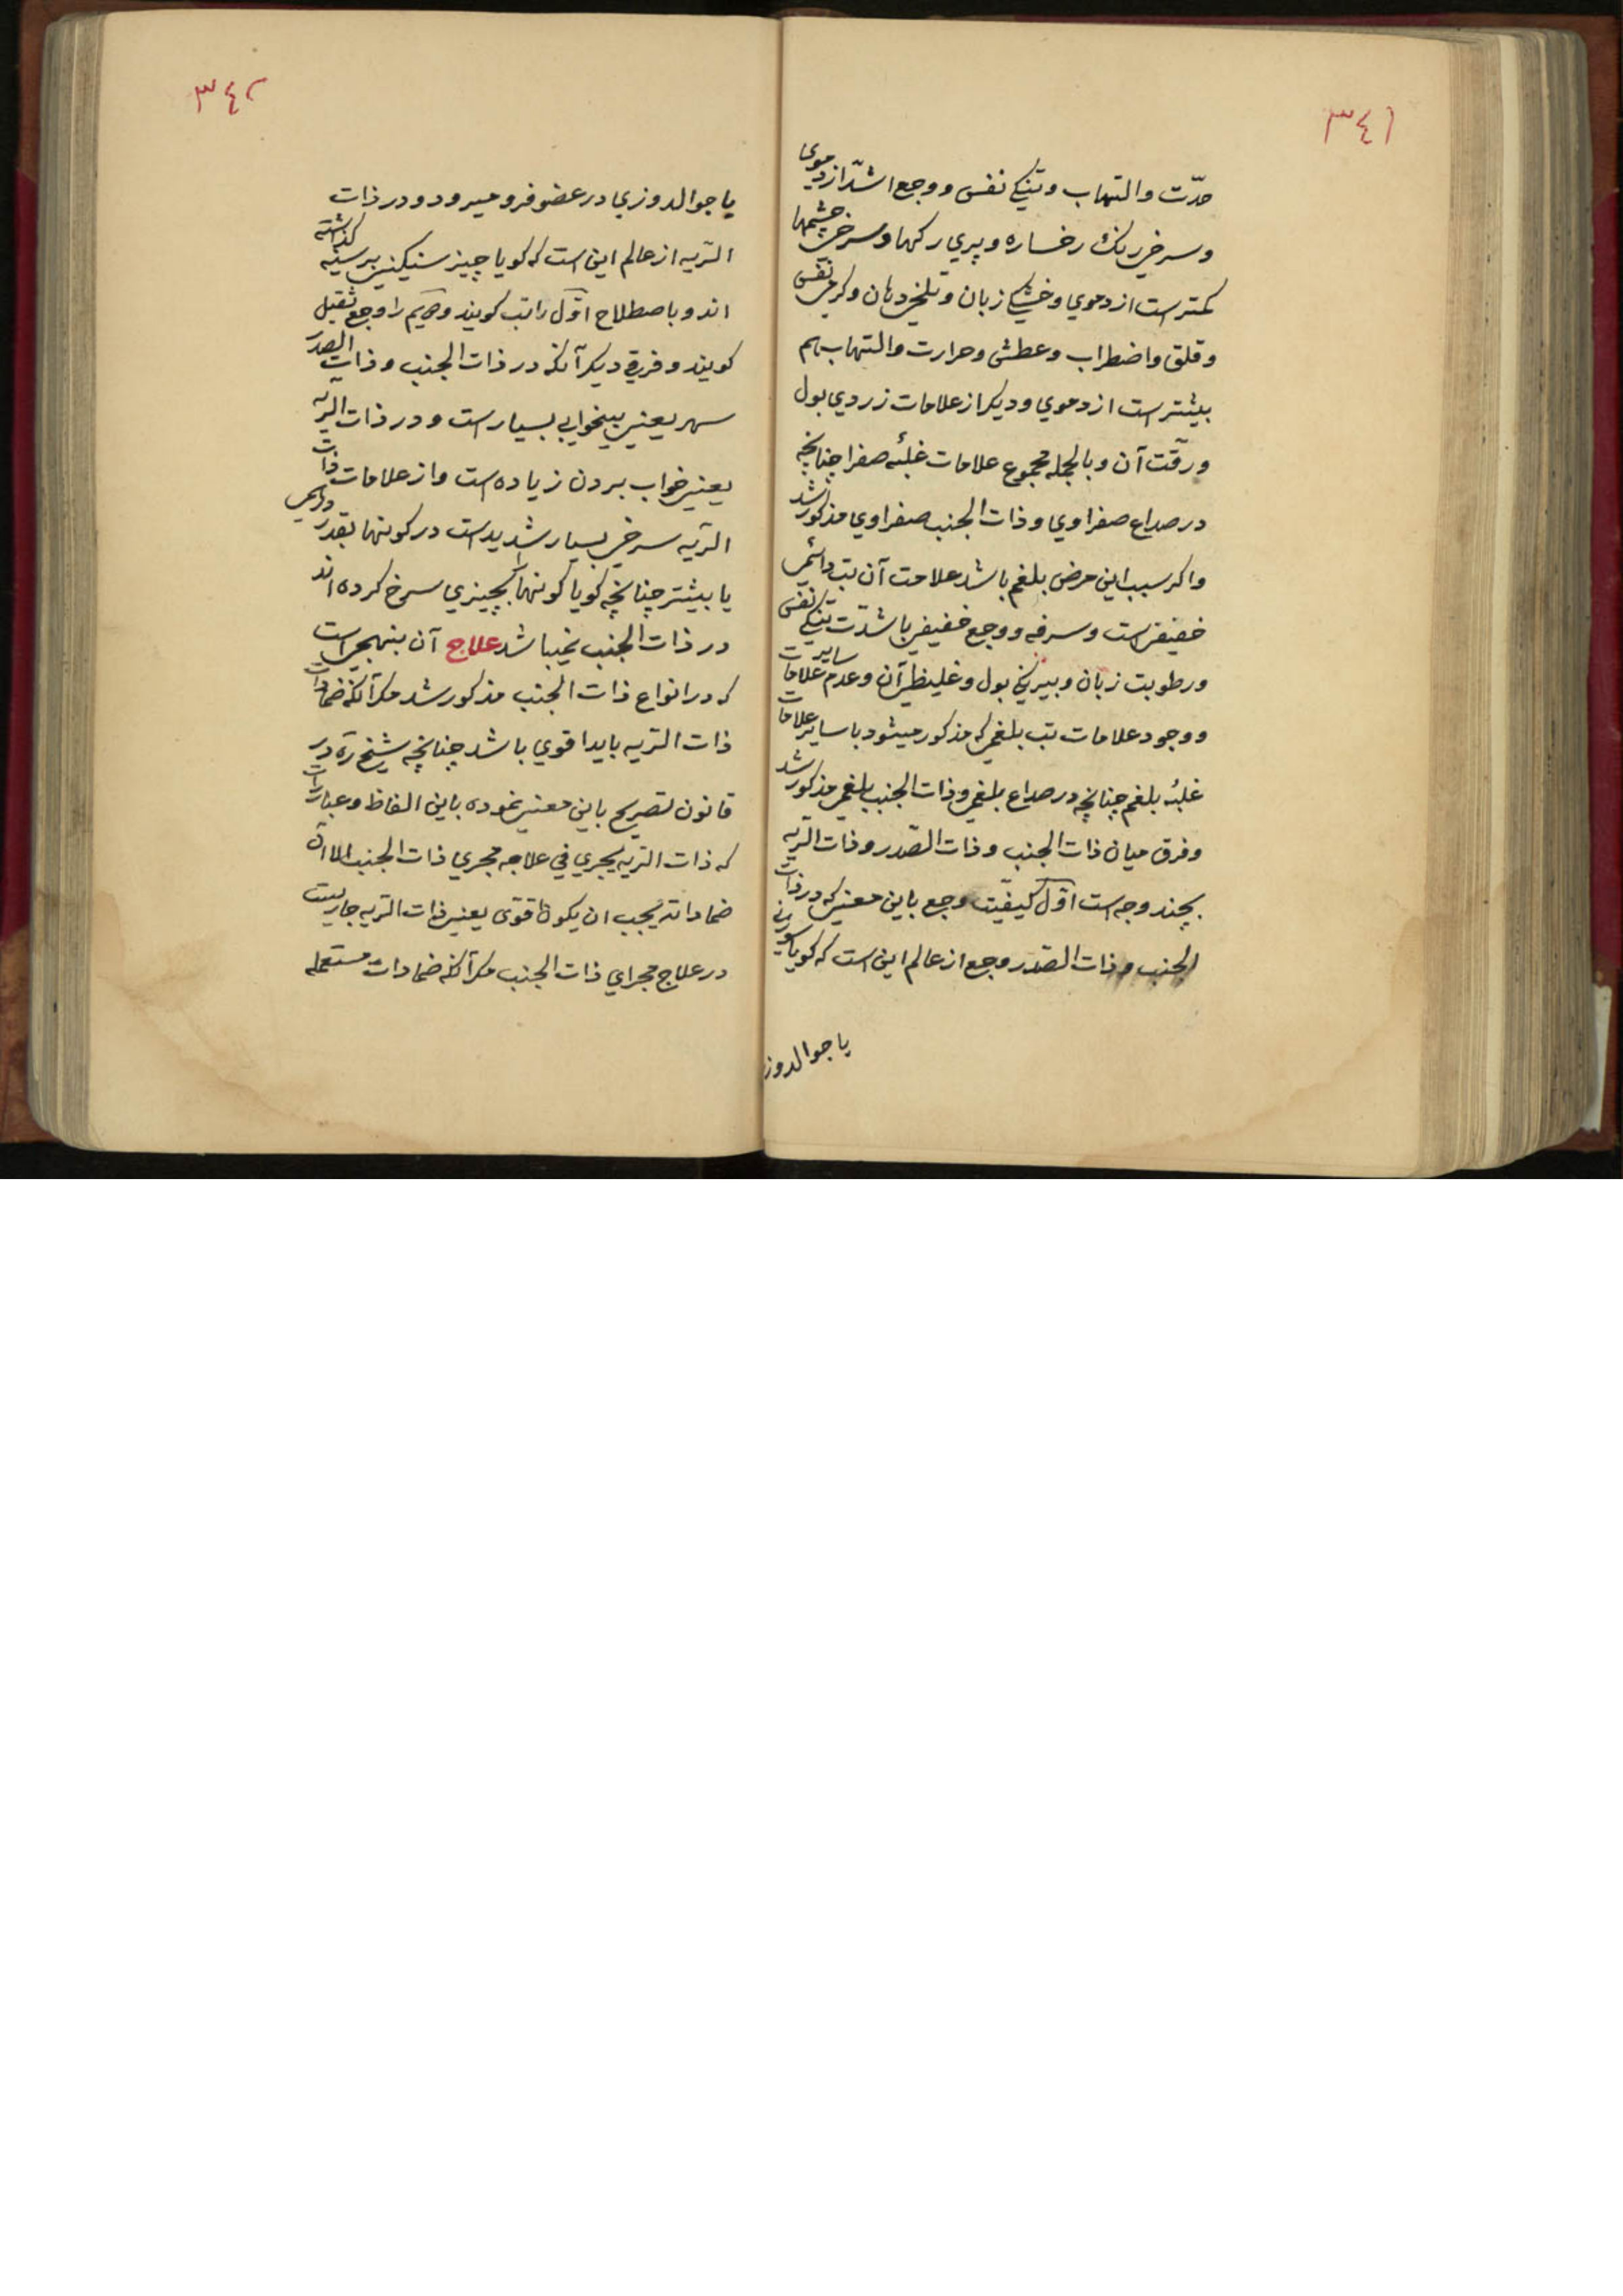 ٣٤١
حدّت والتهاب وتنکی نفس ووجع اشدّ از دموی
وسرخی رنک رخساره وپری رکها وسرخی چشمها
کمتر است از دموی وخشکی زبان وتلخی دهان وکرمی نفس
وقلق واضطراب وعطش وحرارت والتهاب بهم
بیشتر است از دموی ودیکر از علامات زردی بول
ورقّت آن وبالجمله مجموع علامات غلبۀ صفرا چنانچه
در صداع صفراوی وذات الجنب صفراوی مذکور شد
واکر سبب این مرض بلغم باشد علامت آن تب دائمی
خفیف است وسرفه ووجع خفیفی باشدّت تنکی نفس
ورطوبت زبان وبیرنکی بول وغلیظی آن وعدم سایر علامات
ووجود علامات تب بلغمی که مذکور میشود با سایر علامات
غلبۀ بلغم چنانچه در صداع بلغمی وذات الجنب بلغمی مذکور شد
وفرق میان ذات الجنب وذات الصّدر وذات الرّیه
بچند وجه است اوّل کیفیّت وجع باین معنی که در ذات
الجنب وذات الصّدر وجع از عالم این است که کویا سوزنی
یا جوالدوز
٣٤٢
یا جوالدوزی در عضو فرو میرود ودر ذات
الرّیه از عالم این است که کویا چیز سنکینی بر سینه کذاشته
اند وباصطلاح اوّل را تب کویند ودویم را وجع ثقیل
کویند وفرق دیکر آنکه در ذات الجنب وذات الصدر
سهر یعنی بیخوابی بسیار است ودر ذات الرّیه
یعنی خواب بردن زیاده است واز علامات ذات
الرّیه سرخی بسیار شدید است در کونها بقدر درهمی
یا بیشتر چنانچه کویا کونها را بچیزی سرخ کرده اند
در ذات الجنب نمیباشد علاج آن بنهجی است
که در انواع ذات الجنب مذکور شد مکر آنکه ضمادات
ذات الرّیه باید اقوی باشد چنانچه شیخ ره در
قانون تصریح باین معنی نموده باین الفاظ وعبارات
که ذات الرّیه یجری فی علاجه مجری ذات الجنب الا ان
ضماداته یجب ان یکون اقوی یعنی ذات الرّیه جاریست
در علاج مجرای ذات الجنب مکر آنکه ضمادات مستعمله